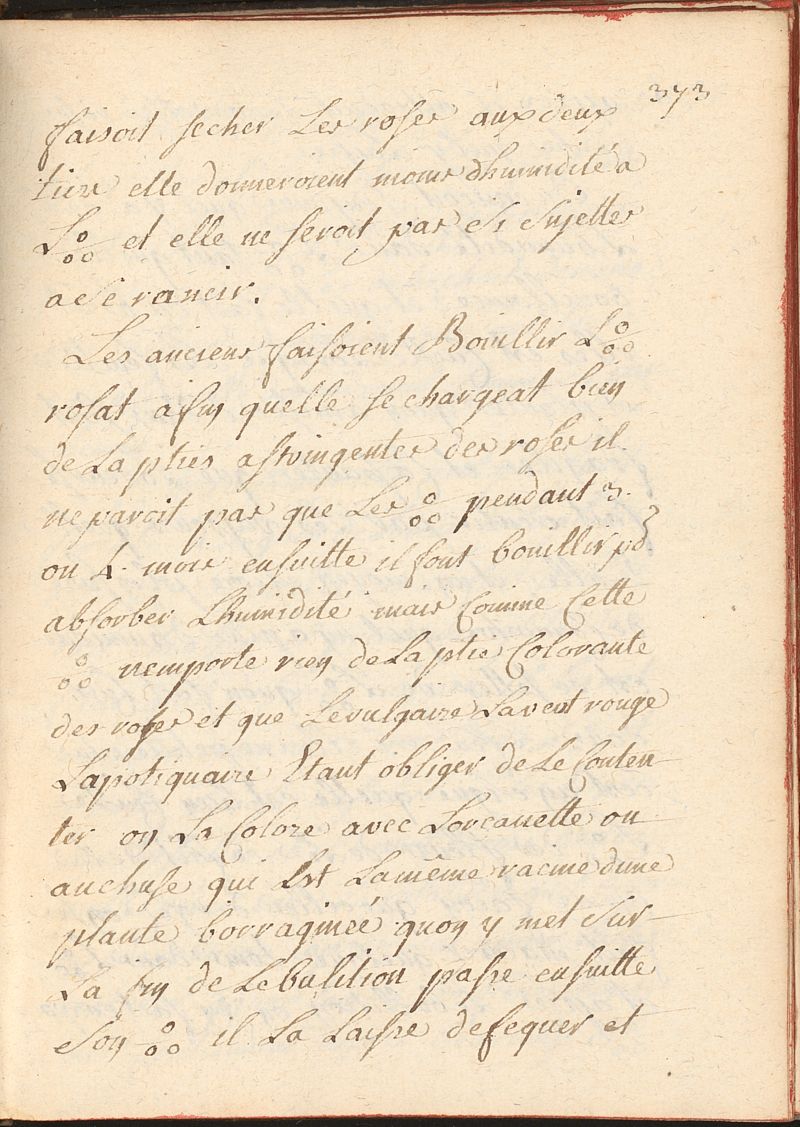 373
faisoit secher Les roses aux deux
tiers elle donneroient moins dhumidité a
L ஃ et elle ne seroit pas si sujettes
a se rancir.
Les anciens faisoient Bouillir L ஃ
rosat afin quelle se chargeat bien
de La ptiés astringentes des roses il
ne paroit pas que Les ஃ pendant 3.
ou 4. mois ensuitte il font bouillir pd
absorber Lhumidité mais Comme Cette
ஃ nemporte rien de La ptie Colorante
des roses et que Le vulgaire La veut rouge
Lapotiquaire Etant obliger de Le Conten-
ter on La Colore avec Lorcanette ou
anchuse qui Est La même racine dune
plante borraginéé quon y met sur-
La fin de Lebulition passe ensuitte
son ஃ il La Laisse defequer et